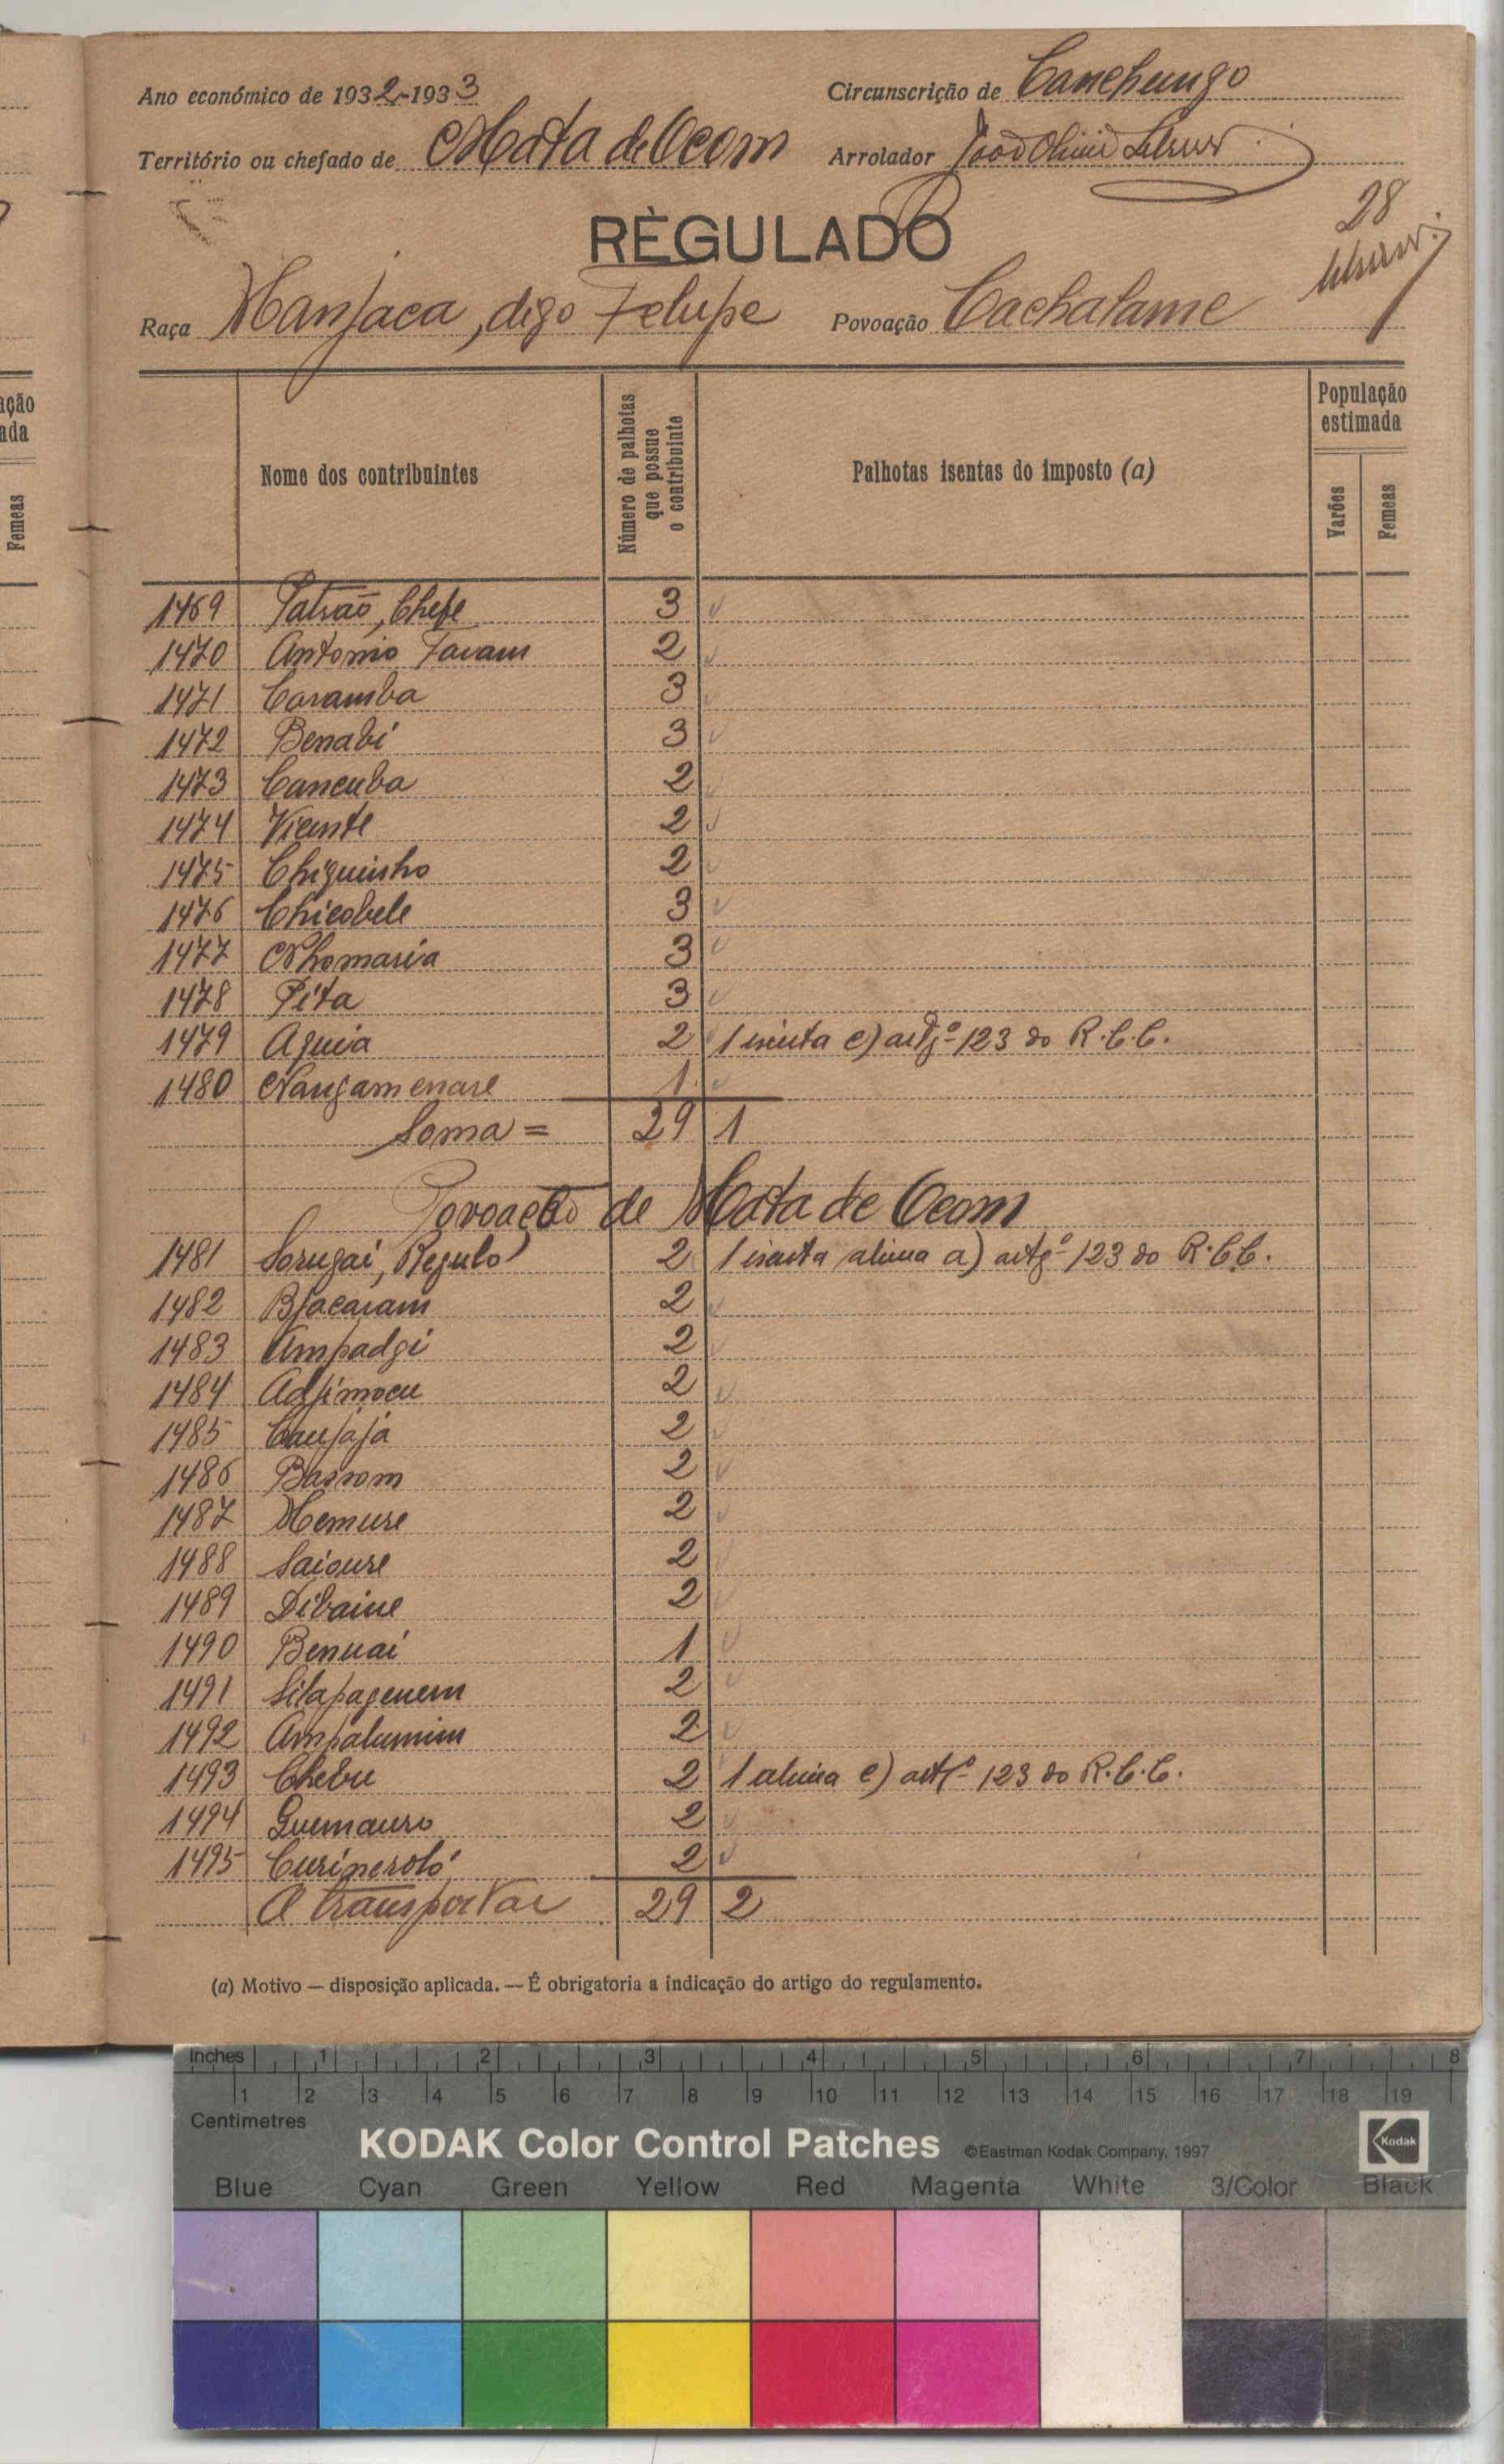 Ano económico de 1932-1933
Circunscrição de Canchungo
Território ou chefado de Mata de Ocom
Arrolador
RÈGULADO
28
Raça Manjaca, digo Felupe
Povoação Cachalame
Nome dos contribuintes
Número de palhotas que possue o contribuinte
Palhotas isentas do imposto (a)
População estimada
Varões
Femeas
1469 Patrão, Chefe 3
1470 Antonio Tavam 2
1471 Caramba 3
1472 Benabi 3
1473 Cancuba 2
1474 Vicente 2
1475 Chiquinho 2
1476 Chicobele 3
1477 Nhomaria 3
1478 Pita 3
1479 Aguia 2 1 isenta e) artgº 123 do R.C.C.
1480 Naugamenare 1
Soma = 29 1
Povoação de Mata de Ocom
1481 Sorugai, Regulo 2 1 isenta alinea a) artgº 123 do R.C.C.
1482 Bjacaram 2
1483 Ampadgi 2
1484 Adjimocu 2
1485 Caujájá 2
1486 Bassom 2
1487 Memure 2
1488 Saioure 2
1489 Dibaine 2
1490 Benuai 1
1491 Silapaguem 2
1492 Ampalumim 2
1493 Chebu 2 1 alinea e) artº 123 do R.C.C.
1494 Guemauro 2
1495 Curineroló 2
A transportar 29 2
(a) Motivo — disposição aplicada. — É obrigatoria a indicação do artigo do regulamento.
ação
ada
Femeas
Inches 1 2 3 4 5 6 7 8
1 2 3 4 5 6 7 8 9 10 11 12 13 14 15 16 17 18 19
Centimetres
KODAK Color Control Patches ©Eastman Kodak Company, 1997 Kodak
Blue Cyan Green Yellow Red Magenta White 3/Color Black